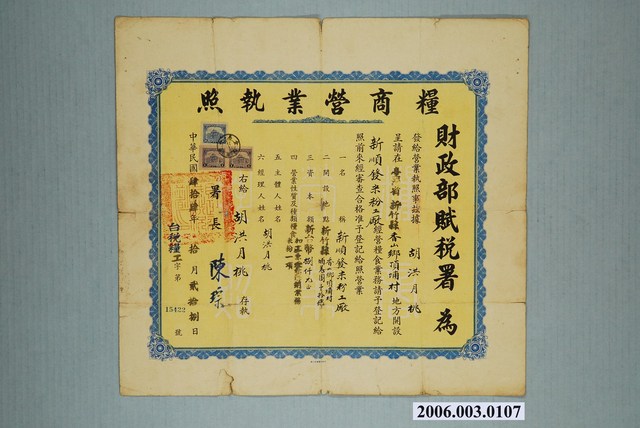 糧商營業執照
財政部賦稅署 為
發給營業執照事茲據 胡洪月桃
呈請在臺灣省新竹縣香山鄉頂埔村地方開設
新順發米粉工廠經營糧食業務請予登記給
照前來經審查合格准予登記給照營業
一 名稱 新順發米粉工廠
二 開設地點 新竹縣香山鄉頂埔村
三 資本額 新台幣捌仟元正
四 營業性質及種類糧食
五 主體人姓名 胡洪月桃
六 經理人姓名
右給 胡洪月桃 存執
署長 陳琮
中華民國肆拾肆年 拾月貳拾捌日
台稅糧工字第15422號
2006.003.0107